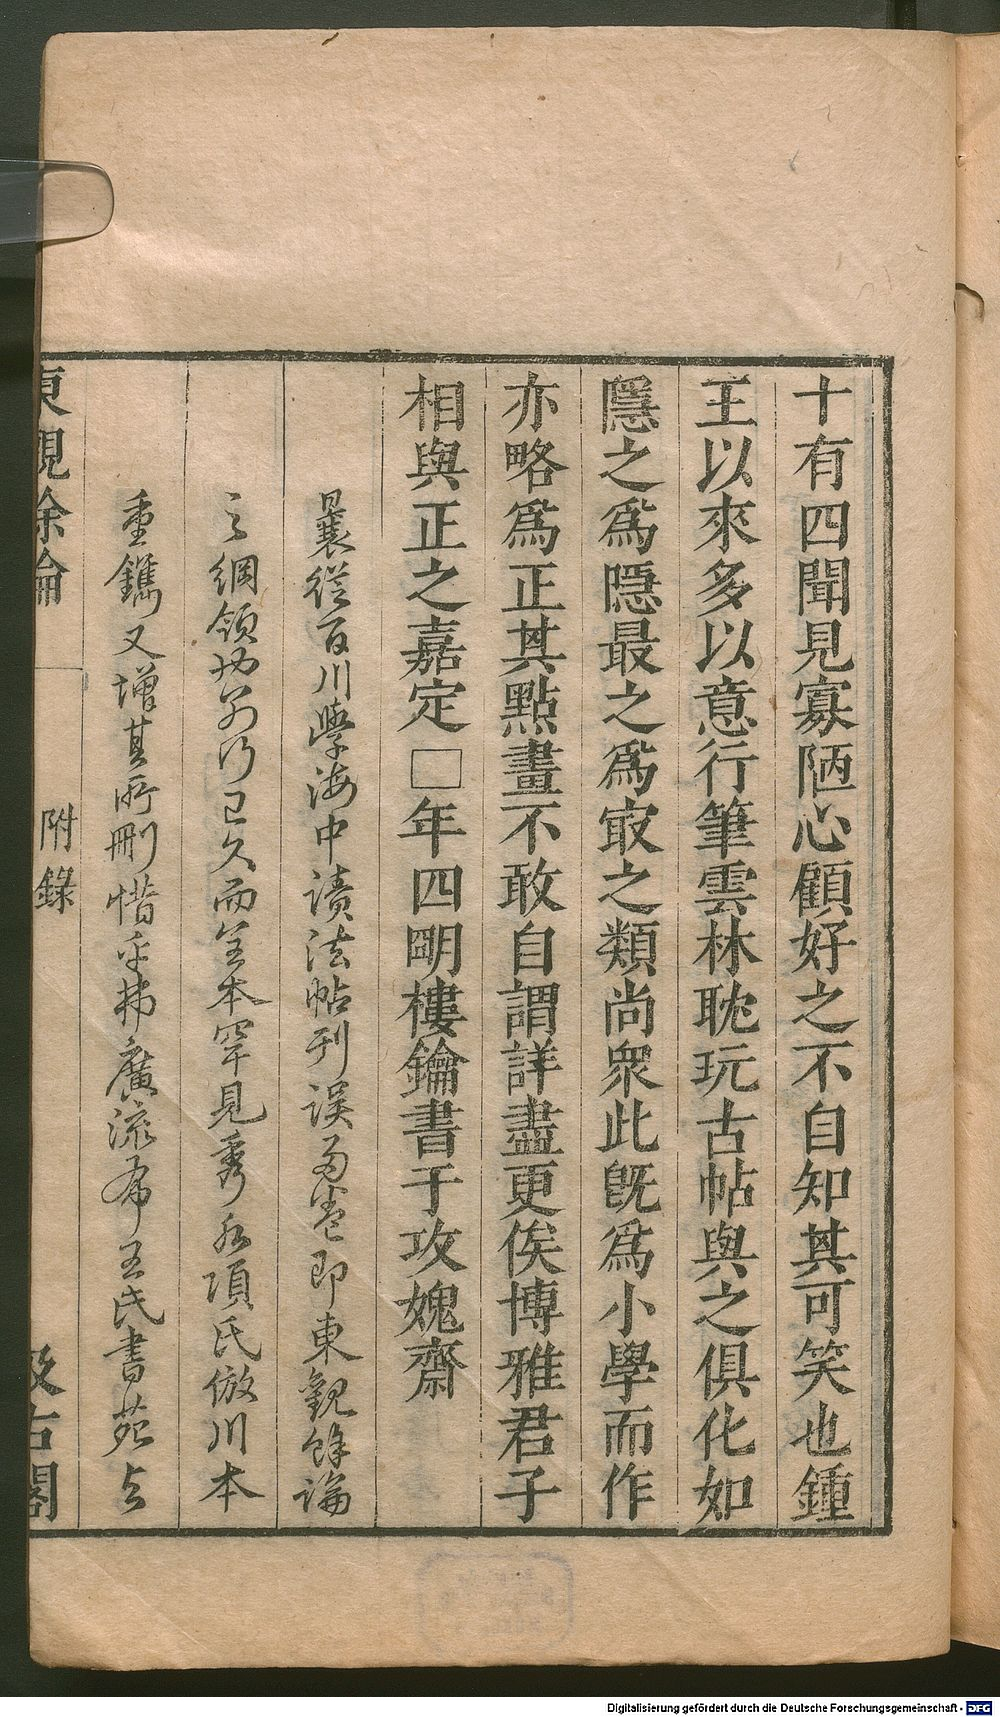 十有四聞見寡陋心顧好之不自知其可笑也鍾
王以來多以意行筆雲林耽玩古帖與之俱化如
隱之爲隠最之爲冣之類尚衆此旣爲小學而作
亦略爲正其點畫不敢自謂詳盡更俟博雅君子
相與正之嘉定□年四明樓鑰書于攻媿齋
曩從百川學海中讀法帖刊误兩卷即東觀餘論
之綱領也若行已久而全本罕見秀水項氏倣川本
重鐫又增其所刪惜乎弗廣流布王氏書苑與
東觀余論
附錄
汲古閣
Digitalisierung gefördert durch die Deutsche Forschungsgemeinschaft - DFG